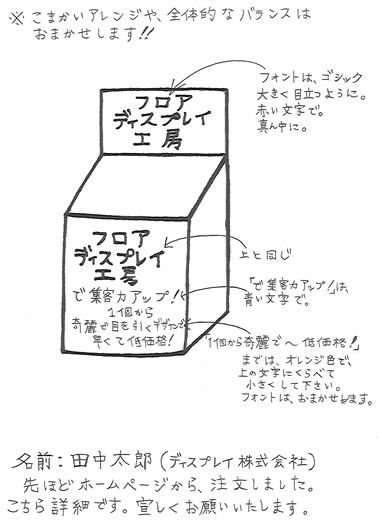 ※ こまかいアレンジや、全体的なバランスは
おまかせします!!
フォントは、ゴシック
大きく目立つように。
赤い文字で。
真ん中に。
フロア
ディスプレイ
工房
フロア
ディスプレイ
工房
で集客力アップ!
1個から
奇麗で目を引くデザインで
早くて低価格!
上と同じ
「で集客力アップ!」は、
青い文字で。
「1個から奇麗で〜低価格!」
までは、オレンジ色で、
上の文字にくらべて
小さくして下さい。
フォントは、おまかせします。
名前:田中太郎(ディスプレイ株式会社)
先ほどホームページから、注文しました。
こちら詳細です。宜しくお願いいたします。